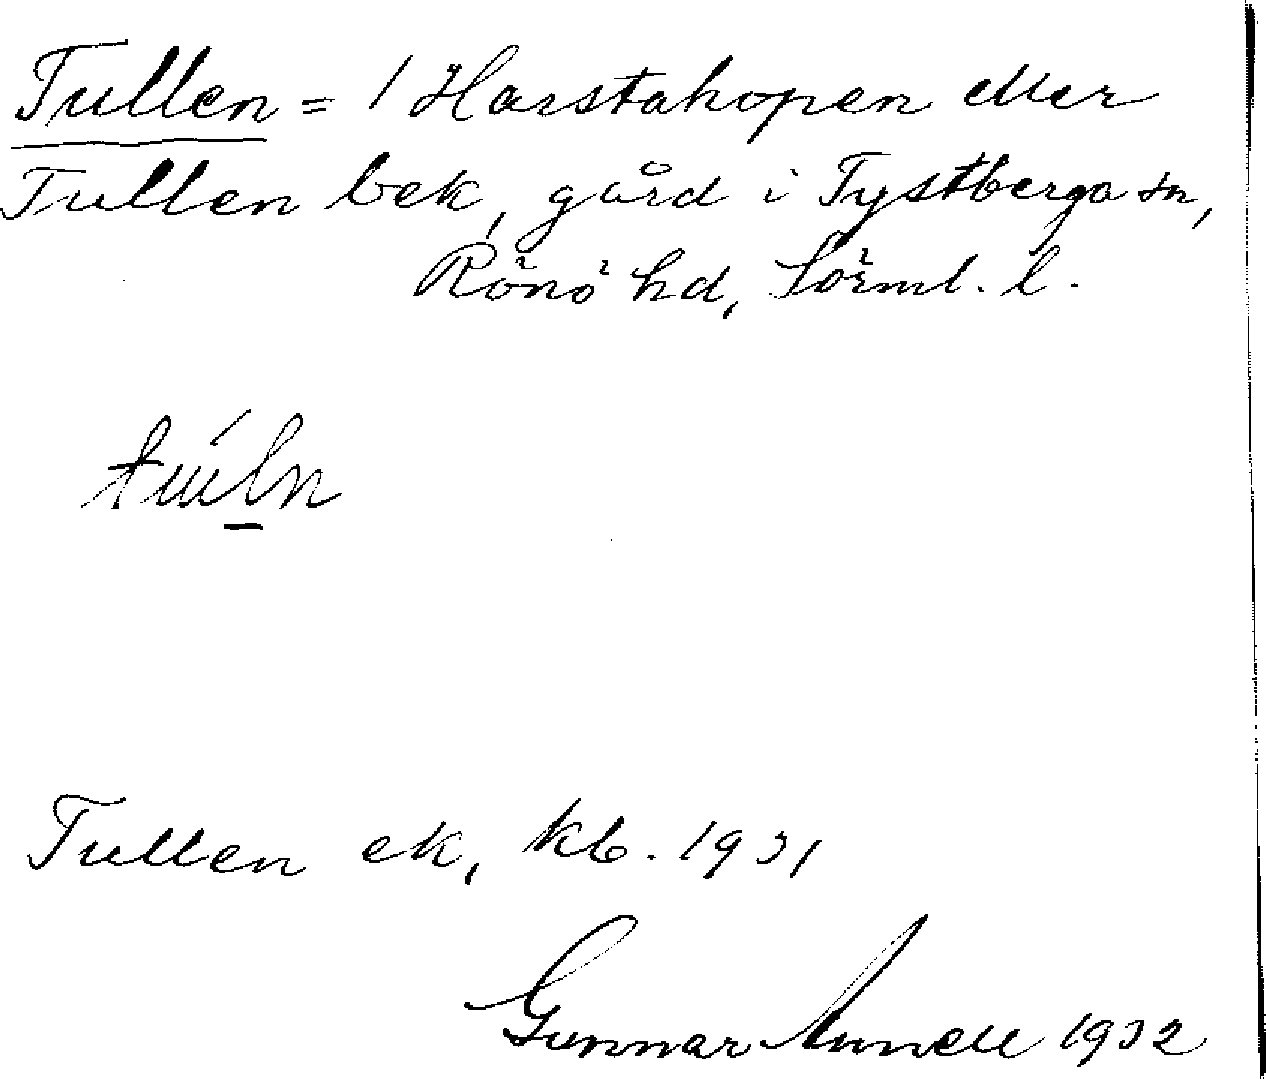 Tullen = / Harstahopen eller
Tullen bek, gård i Tystberga sn,
Rönö hd, Sörml. l.
Tullen ek, kb. 1931
Gunnar Annell 1932